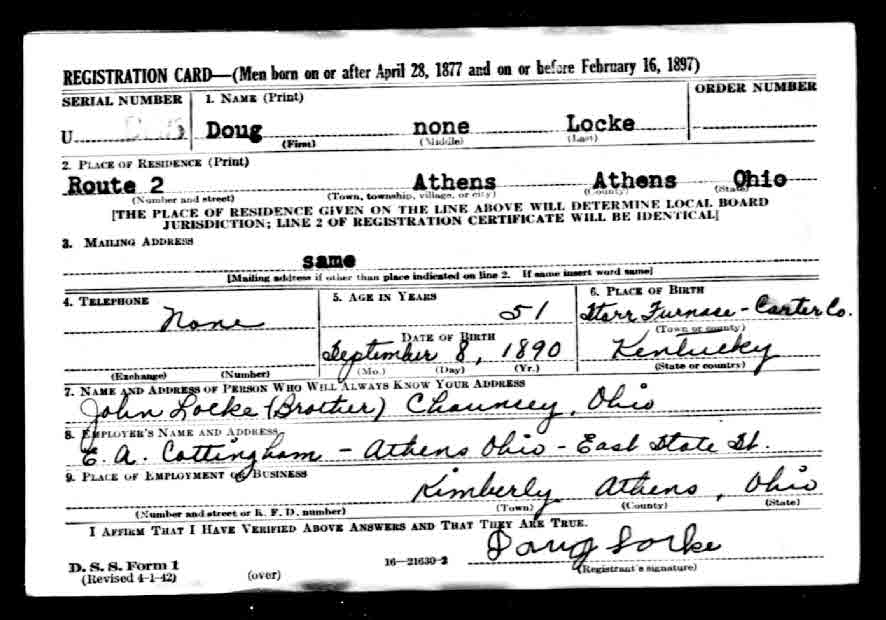 REGISTRATION CARD—(Men born on or after April 28, 1877 and on or before February 16, 1897)
SERIAL NUMBER
1. NAME (Print)
ORDER NUMBER
U
Doug none Locke
(First) (Middle) (Last)
2. PLACE OF RESIDENCE (Print)
Route 2 Athens Athens Ohio
(Number and street) (Town, township, village, or city) (County) (State)
[THE PLACE OF RESIDENCE GIVEN ON THE LINE ABOVE WILL DETERMINE LOCAL BOARD
JURISDICTION; LINE 2 OF REGISTRATION CERTIFICATE WILL BE IDENTICAL]
3. MAILING ADDRESS
same
[Mailing address if other than place indicated on line 2. If same insert word same]
4. TELEPHONE
None
(Exchange) (Number)
5. AGE IN YEARS
51
DATE OF BIRTH
September 8, 1890
(Mo.) (Day) (Yr.)
6. PLACE OF BIRTH
Starr Furnase - Carter Co.
(Town or county)
Kentucky
(State or country)
7. NAME AND ADDRESS OF PERSON WHO WILL ALWAYS KNOW YOUR ADDRESS
John Locke (Brother) Chauncey, Ohio
8. EMPLOYER'S NAME AND ADDRESS
E. A. Cottingham - Athens Ohio - East State St.
9. PLACE OF EMPLOYMENT OR BUSINESS
Kimberly Athens, Ohio
(Number and street or R. F. D. number) (Town) (County) (State)
I AFFIRM THAT I HAVE VERIFIED ABOVE ANSWERS AND THAT THEY ARE TRUE.
Doug Locke
D. S. S. Form 1
(Revised 4-1-42) (over) 16—21630-2 (Registrant's signature)